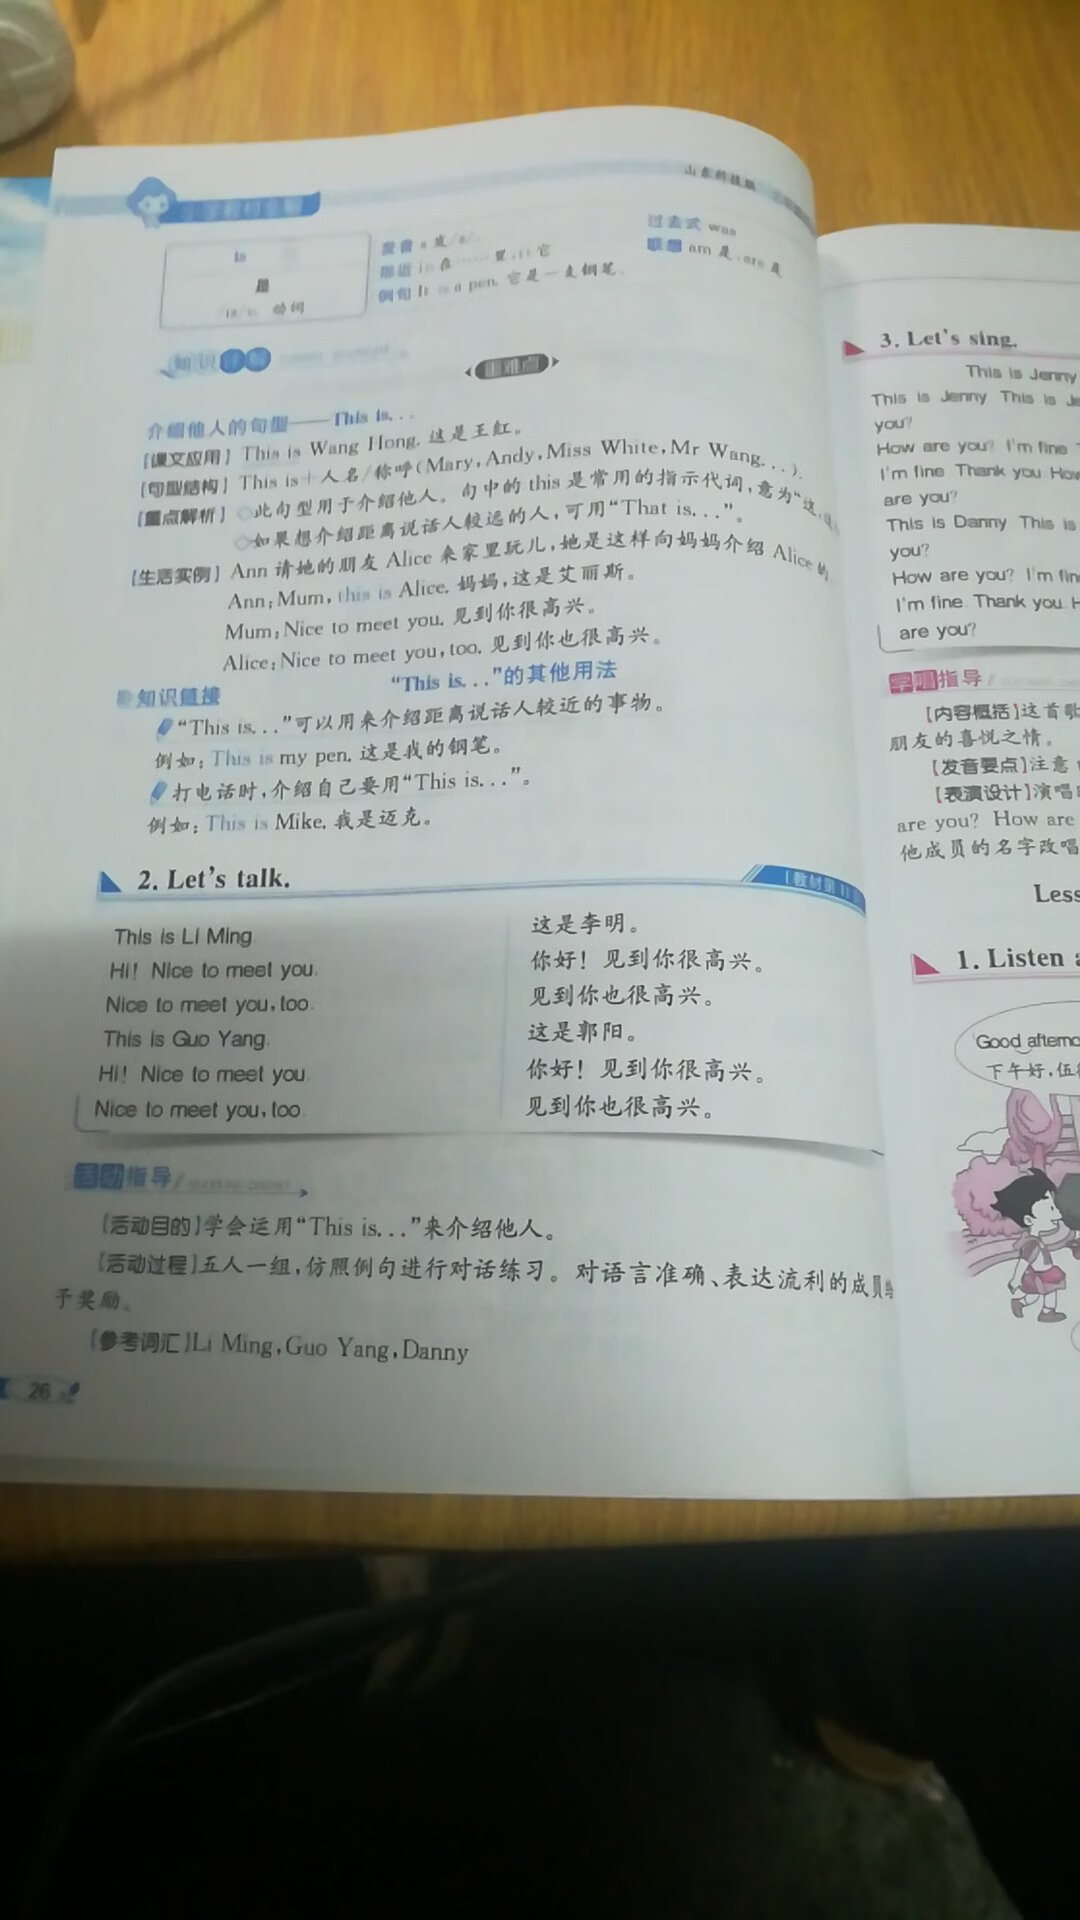 山东科技版
is
是
动词
发音 s 发/z/。
形近 in 在……里,it 它
例句 It is a pen. 它是一支钢笔。
过去式 was
联想 am 是,are 是
知识详解
重难点
介绍他人的句型——This is...
【课文应用】This is Wang Hong. 这是王红。
【句型结构】This is+人名/称呼(Mary,Andy,Miss White,Mr Wang...).
【重点解析】◇此句型用于介绍他人。句中的this是常用的指示代词,意为“这,这
◇如果想介绍距离说话人较远的人,可用“That is...”。
【生活实例】Ann请她的朋友Alice来家里玩儿,她是这样向妈妈介绍Alice的
Ann:Mum,this is Alice. 妈妈,这是艾丽斯。
Mum:Nice to meet you. 见到你很高兴。
Alice:Nice to meet you,too. 见到你也很高兴。
知识链接
“This is...”的其他用法
“This is...”可以用来介绍距离说话人较近的事物。
例如:This is my pen. 这是我的钢笔。
打电话时,介绍自己要用“This is...”。
例如:This is Mike. 我是迈克。
2. Let's talk.
(教材第11
This is Li Ming.
Hi! Nice to meet you.
Nice to meet you,too.
This is Guo Yang.
Hi! Nice to meet you.
Nice to meet you,too.
这是李明。
你好!见到你很高兴。
见到你也很高兴。
这是郭阳。
你好!见到你很高兴。
见到你也很高兴。
活动指导/
【活动目的】学会运用“This is...”来介绍他人。
【活动过程】五人一组,仿照例句进行对话练习。对语言准确、表达流利的成员给
予奖励。
【参考词汇】Li Ming,Guo Yang,Danny
26
3. Let's sing.
This is Jenny
This is Jenny This is Je
you?
How are you? I'm fine T
I'm fine Thank you How
are you?
This is Danny This is
you?
How are you? I'm fine
I'm fine. Thank you. H
are you?
学唱指导/
【内容概括】这首歌
朋友的喜悦之情。
【发音要点】注意
【表演设计】演唱时
are you? How are
他成员的名字改唱
Less
1. Listen a
Good afterno
下午好,伍